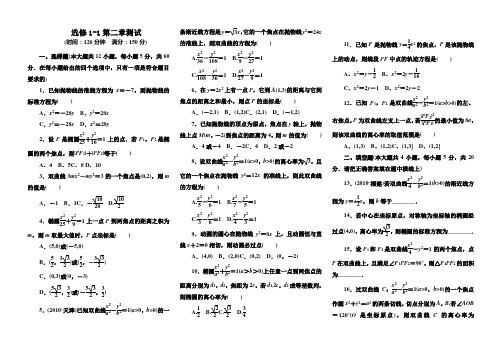 选修1-1 第二章测试
(时间：120分钟 满分：150分)
一、选择题(本大题共12小题，每小题5分，共60
分．在每小题给出的四个选项中，只有一项是符合题目
要求的)
1．已知抛物线的准线方程为x＝－7，则抛物线的
标准方程为(　　)
A．x²＝－28y　B．y²＝28x
C．y²＝－28x　D．x²＝28y
2．设P是椭圆x²/25＋y²/16＝1上的点．若F₁，F₂是椭
圆的两个焦点，则|PF₁|＋|PF₂|等于(　　)
A．4　B．5C．8　D．10
3．双曲线3mx²－my²＝3的一个焦点是(0,2)，则m
的值是(　　)
A．－1　B．1C．－√10/20　D.√10/2
4．椭圆x²/25＋y²/9＝1上一点P到两焦点的距离之积为
m，则m取最大值时，P点坐标是(　　)
A．(5,0)或(－5,0)
B．(5/2，3√3/2)或(5/2，－3√3/2)
C．(0,3)或(0，－3)
D．(5√3/2，3/2)或(－5√3/2，3/2)
5．(2010·天津)已知双曲线x²/a²－y²/b²＝1(a>0，b>0)的一
条渐近线方程是y＝√3x，它的一个焦点在抛物线y²＝24x
的准线上，则双曲线的方程为(　　)
A.x²/36－y²/108＝1　B.x²/9－y²/27＝1
C.x²/108－y²/36＝1　D.x²/27－y²/9＝1
6．在y＝2x²上有一点P，它到A(1,3)的距离与它到
焦点的距离之和最小，则点P的坐标是(　　)
A．(－2,1)　B．(1,2)C．(2,1)　D．(－1,2)
7．已知抛物线的顶点为原点，焦点在y轴上，抛物
线上点M(m，－2)到焦点的距离为4，则m的值为(　　)
A．4或－4　B．－2C．4　D．2或－2
8．设双曲线x²/a²－y²/b²＝1(a>0，b>0)的离心率为√3，且
它的一个焦点在抛物线y²＝12x的准线上，则此双曲线
的方程为(　　)
9．动圆的圆心在抛物线y²＝8x上，且动圆恒与直
线x＋2＝0相切，则动圆必过点(　　)
A．(4,0)　B．(2,0)C．(0,2)　D．(0，－2)
10．椭圆x²/a²＋y²/b²＝1(a>b>0)上任意一点到两焦点的
距离分别为d₁，d₂，焦距为2c，若d₁,2c，d₂成等差数列，
则椭圆的离心率为(　　)
A.1/2　B.√2/2C.√3/2　D.3/4
11．已知F是抛物线y＝1/4x²的焦点，P是该抛物线
上的动点，则线段PF中点的轨迹方程是(　　)
A．x²＝y－1/2　B．x²＝2y－1/16
C．x²＝2y－1　D．x²＝2y－2
12．已知F₁，F₂是双曲线x²/a²－y²/b²＝1(a>b>0)的左、
右焦点，P为双曲线左支上一点，若|PF₂|²/|PF₁|的最小值为8a，
则该双曲线的离心率的取值范围是(　　)
A．(1,3)　B．(1,2)C．(1,3]　D．(1,2]
二、填空题(本大题共4小题，每小题5分，共20
分．请把正确答案填在题中横线上)
13．(2010·福建)若双曲线x²/4－y²/b²＝1(b>0)的渐近线方
程为y＝±1/2x，则b等于________．
14．若中心在坐标原点，对称轴为坐标轴的椭圆经
过点(4,0)，离心率为√3/2，则椭圆的标准方程为________．
15．设F₁和F₂是双曲线x²/4－y²＝1的两个焦点，点
P在双曲线上，且满足∠F₁PF₂＝90°，则△F₁PF₂的面积
为________．
16．过双曲线C：x²/a²－y²/b²＝1(a>0，b>0)的一个焦点
作圆x²＋y²＝a²的两条切线，切点分别为A，B.若∠AOB
＝120°(O是坐标原点)，则双曲线C的离心率为